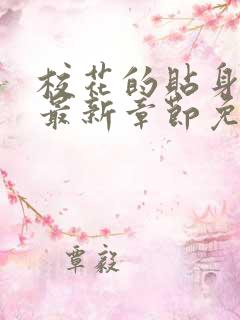 校花的贴身
最新章节免
覃毅